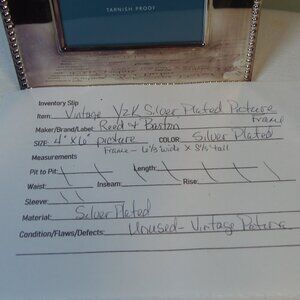 TARNISH PROOF
Inventory Slip
Item: Vintage Y2K Silver Plated Picture Frame
Maker/Brand/Label: Reed & Barton
SIZE: 4" x 6" picture COLOR: Silver Plated
Frame - 6 1/2 wide x 8 1/2 tall
Measurements
Pit to Pit: Length:
Waist: Inseam: Rise:
Sleeve:
Material: Silver Plated
Condition/Flaws/Defects: Unused - Vintage Patina